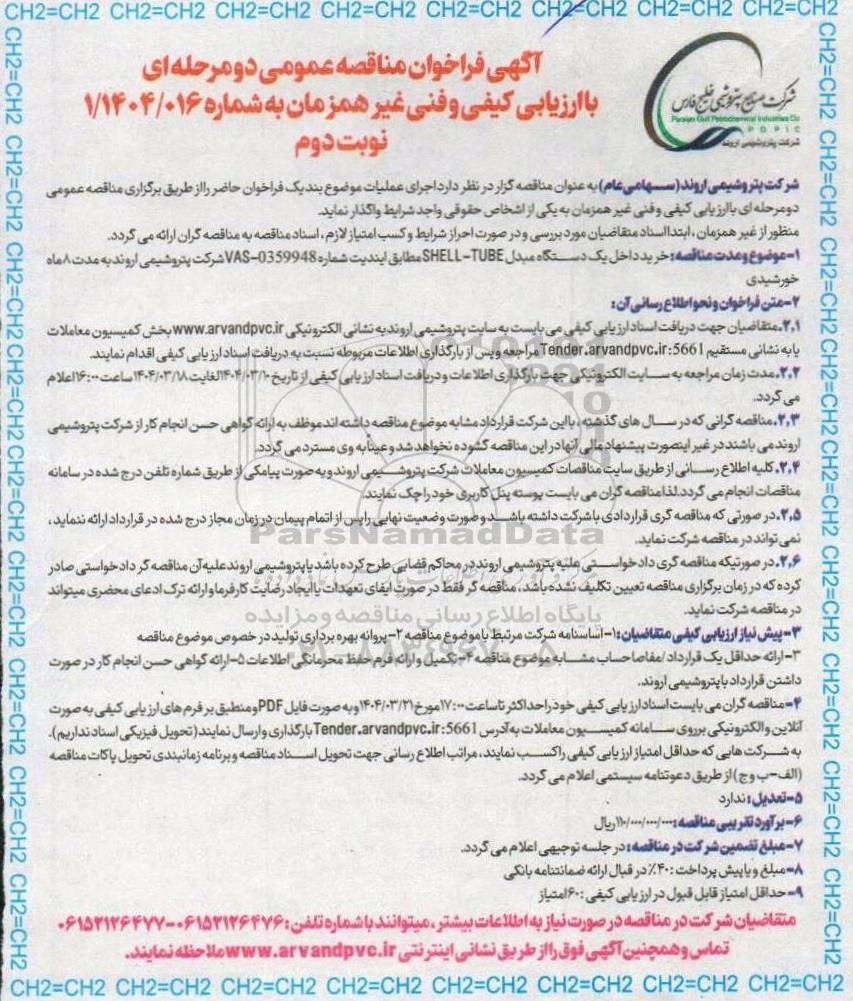 CH2=CH2 CH2=CH2 CH2=CH2 CH2=CH2 CH2=CH2 CH2=CH2 CH2=CH2 CH2=CH2 CH2=CH2
آگهی فراخوان مناقصه عمومی دو مرحله ای
با ارزیابی کیفی و فنی غیر همزمان به شماره ۱/۱۴۰۴/۰۱۶
نوبت دوم
شرکت صنایع پتروشیمی خلیج فارس
Persian Gulf Petrochemical Industries Co
P G P I C
شرکت پتروشیمی اروند
شرکت پتروشیمی اروند (سهامی عام) به عنوان مناقصه گزار در نظر دارد اجرای عملیات موضوع بند یک فراخوان حاضر را از طریق برگزاری مناقصه عمومی
دو مرحله ای با ارزیابی کیفی و فنی غیر همزمان به یکی از اشخاص حقوقی واجد شرایط واگذار نماید.
منظور از غیر همزمان، ابتدا اسناد متقاضیان مورد بررسی و در صورت احراز شرایط و کسب امتیاز لازم، اسناد مناقصه به مناقصه گران ارائه می گردد.
۱-موضوع و مدت مناقصه: خرید داخل یک دستگاه مبدل SHELL-TUBE مطابق ایندیت شماره VAS-0359948 شرکت پتروشیمی اروند به مدت ۸ ماه
خورشیدی
۲-متن فراخوان و نحو اطلاع رسانی آن:
۲.۱.متقاضیان جهت دریافت اسناد ارزیابی کیفی می بایست به سایت پتروشیمی اروند به نشانی الکترونیکی www.arvandpvc.ir بخش کمیسیون معاملات
یا به نشانی مستقیم Tender.arvandpvc.ir:5661 مراجعه و پس از بارگذاری اطلاعات مربوطه نسبت به دریافت اسناد ارزیابی کیفی اقدام نمایند.
۲.۲.مدت زمان مراجعه به سایت الکترونیکی جهت بارگذاری اطلاعات و دریافت اسناد ارزیابی کیفی از تاریخ ۱۴۰۴/۰۳/۱۰ لغایت ۱۴۰۴/۰۳/۱۸ ساعت ۱۶:۰۰ اعلام
می گردد.
۲.۳.مناقصه گرانی که در سال های گذشته، با این شرکت قرارداد مشابه موضوع مناقصه داشته اند موظف به ارائه گواهی حسن انجام کار از شرکت پتروشیمی
اروند می باشند در غیر اینصورت پیشنهاد مالی آنها در این مناقصه گشوده نخواهد شد و عیناً به وی مسترد می گردد.
۲.۴.کلیه اطلاع رسانی از طریق سایت مناقصات کمیسیون معاملات شرکت پتروشیمی اروند و به صورت پیامکی از طریق شماره تلفن درج شده در سامانه
مناقصات انجام می گردد. لذا مناقصه گران می بایست پوسته پنل کاربری خود را چک نمایند.
۲.۵.در صورتی که مناقصه گری قراردادی با شرکت داشته باشد و صورت وضعیت نهایی را پس از اتمام پیمان در زمان مجاز درج شده در قرارداد ارائه ننماید،
نمی تواند در مناقصه شرکت نماید.
۲.۶.در صورتیکه مناقصه گری دادخواستی علیه پتروشیمی اروند در محاکم قضایی طرح کرده باشد یا پتروشیمی اروند علیه آن مناقصه گر دادخواستی صادر
کرده که در زمان برگزاری مناقصه تعیین تکلیف نشده باشد، مناقصه گر فقط در صورت ایفای تعهدات یا ایجاد رضایت کارفرما و ارائه ترک ادعای محضری میتواند
در مناقصه شرکت نماید.
۳-پیش نیاز ارزیابی کیفی متقاضیان: ۱-اساسنامه شرکت مرتبط با موضوع مناقصه ۲-پروانه بهره برداری تولید در خصوص موضوع مناقصه
۳-ارائه حداقل یک قرارداد/مفاصا حساب مشابه موضوع مناقصه ۴-تکمیل و ارائه فرم حفظ محرمانگی اطلاعات ۵-ارائه گواهی حسن انجام کار در صورت
داشتن قرارداد با پتروشیمی اروند.
۴-مناقصه گران می بایست اسناد ارزیابی کیفی خود را حداکثر تا ساعت ۱۷:۰۰ مورخ ۱۴۰۴/۰۳/۲۱ و به صورت فایل PDF و منطبق بر فرم های ارزیابی کیفی به صورت
آنلاین و الکترونیکی بر روی سامانه کمیسیون معاملات به آدرس Tender.arvandpvc.ir:5661 بارگذاری و ارسال نمایند (تحویل فیزیکی اسناد نداریم).
به شرکت هایی که حداقل امتیاز ارزیابی کیفی را کسب نمایند، مراتب اطلاع رسانی جهت تحویل اسناد مناقصه و برنامه زمانبندی تحویل پاکات مناقصه
(الف-ب و ج) از طریق دعوتنامه سیستمی اعلام می گردد.
۵-تعدیل: ندارد
۶-برآورد تقریبی مناقصه: ۱۱۰/۰۰۰/۰۰۰/۰۰۰ ریال
۷-مبلغ تضمین شرکت در مناقصه: در جلسه توجیهی اعلام می گردد.
۸-مبلغ و یا پیش پرداخت: ۴۰٪ در قبال ارائه ضمانتنامه بانکی
۹-حداقل امتیاز قابل قبول در ارزیابی کیفی: ۶۰ امتیاز
متقاضیان شرکت در مناقصه در صورت نیاز به اطلاعات بیشتر، میتوانند با شماره تلفن: ۰۶۱۵۲۱۲۶۴۷۶-۰۶۱۵۲۱۲۶۴۷۷
تماس و همچنین آگهی فوق را از طریق نشانی اینترنتی www.arvandpvc.ir ملاحظه نمایند.
ParsNamadData
پایگاه اطلاع رسانی مناقصه و مزایده
۰۲۱-۸۸۳۴۹۶۷۰-۵
CH2=CH2 CH2=CH2 CH2=CH2 CH2=CH2 CH2=CH2 CH2=CH2 CH2=CH2 CH2=CH2 CH2=CH2